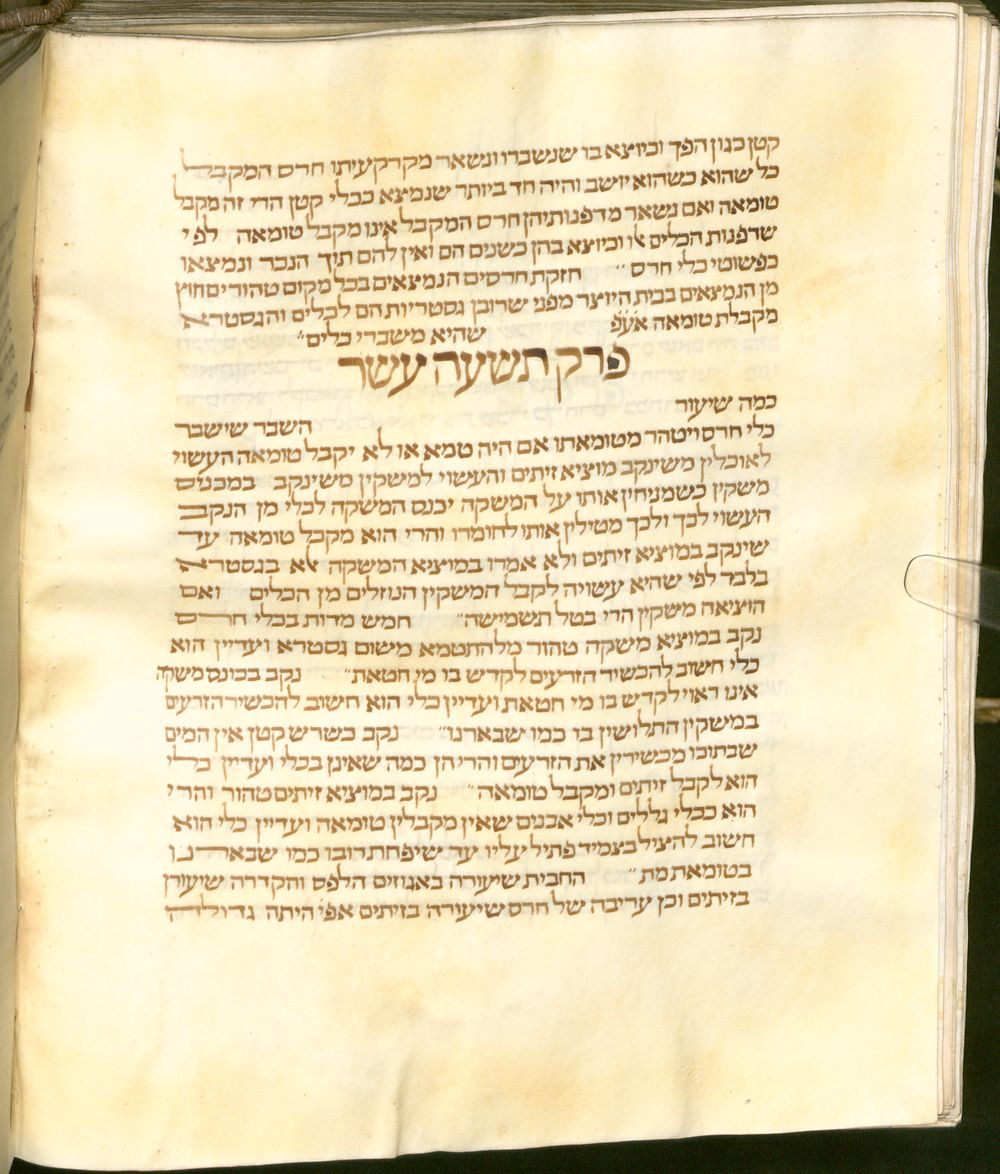 קטן כגון הפך וכיוצא בו שנשברו ונשאר מקרקעיתו חרס המקבל
כל שהוא כשהוא יושב והיה חד ביותר שנמצא ככלי קטן הרי זה מקבל
טומאה ואם נשאר מדפנותיהן חרס המקבל אינו מקבל טומאה לפי
שדפנות הכלים אלו וכיוצא בהן כשנים הם ואין להם תוך הנכר ונמצאו
כפשוטי כלי חרס ״ חזקת חרסים הנמצאים בכל מקום טהורים חוץ
מן הנמצאים בבית היוצר מפני שרובן גסטריות הם לכלים והגסטרא
מקבלת טומאה אעפ שהיא משברי כלים״
פרק תשעה עשר
כמה שיעור
השבר שישבר
כלי חרס ויטהר מטומאתו אם היה טמא או לא יקבל טומאה העשוי
לאוכלין משינקב מוציא זיתים והעשוי למשקין משינקב במכניס
משקין כשמניחין אותו על המשקה יכנס המשקה לכלי מן הנקב
העשוי לכך ולכך מטילין אותו לחומרו והרי הוא מקבל טומאה עד
שינקב במוציא זיתים ולא אמרו במוציא המשקה אלא בגסטרא
בלבד לפי שהיא עשויה לקבל המשקין הנוזלים מן הכלים ואם
הוציאה משקין הרי בטל תשמישה״ חמש מדות בכלי חרס
נקב במוציא משקה טהור מלהתטמא משום גסטרא ועדיין הוא
כלי חשוב להכשיר הזרעים לקדש בו מי חטאת״ נקב בכונס משקה
אינו ראוי לקדש בו מי חטאת ועדיין כלי הוא חשוב להכשיר הזרעים
במשקין התלושין בו כמו שבארנו״ נקב כשרש קטן אין המים
שבתוכו מכשירין את הזרעים והרי הן כמה שאינן בכלי ועדיין כלי
הוא לקבל זיתים ומקבל טומאה״ נקב במוציא זיתים טהור והרי
הוא ככלי גללים וכלי אבנים שאין מקבלין טומאה ועדיין כלי הוא
חשוב להציל בצמיד פתיל עליו עד שיפחת רובו כמו שבארנו
בטומאת מת״ החבית שיעורה באגוזים הלפס והקדרה שיעורן
בזיתים וכן עריבה של חרס שיעורה בזיתים אפי היתה גדולה